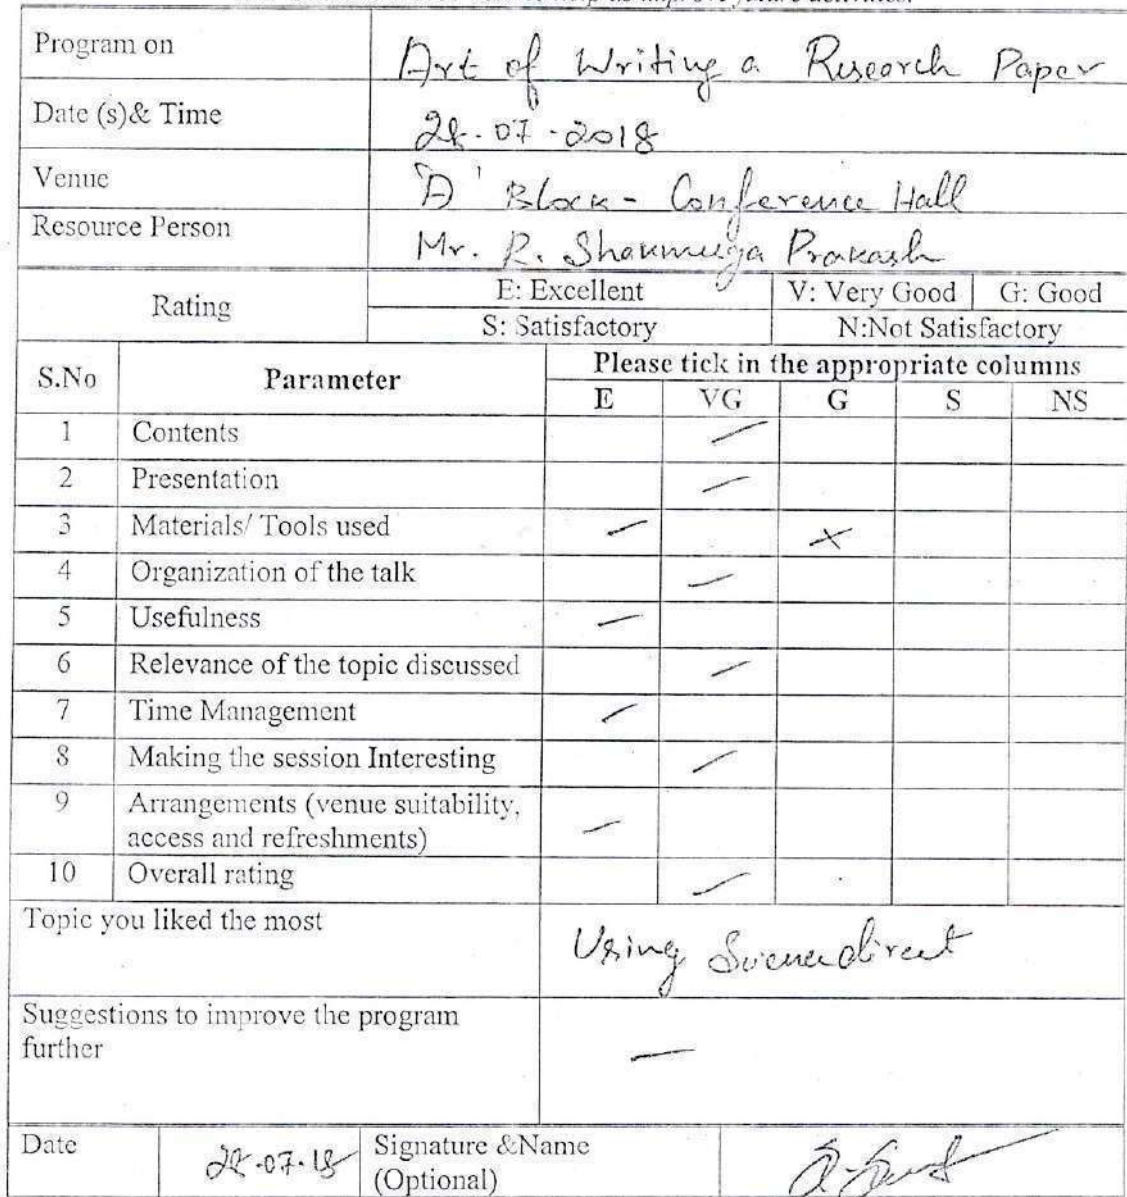 help us improve future activities.
Program on Art of Writing a Research Paper
Date (s)& Time 28-07-2018
Venue 'A' Block - Conference Hall
Resource Person Mr. R. Shanmuga Prakash
Rating E: Excellent V: Very Good G: Good
S: Satisfactory N:Not Satisfactory
S.No Parameter Please tick in the appropriate columns
E VG G S NS
1 Contents
2 Presentation
3 Materials/ Tools used
4 Organization of the talk
5 Usefulness
6 Relevance of the topic discussed
7 Time Management
8 Making the session Interesting
9 Arrangements (venue suitability,
access and refreshments)
10 Overall rating
Topic you liked the most Using Sciencedirect
Suggestions to improve the program
further —
Date 28-07-18 Signature &Name
(Optional)